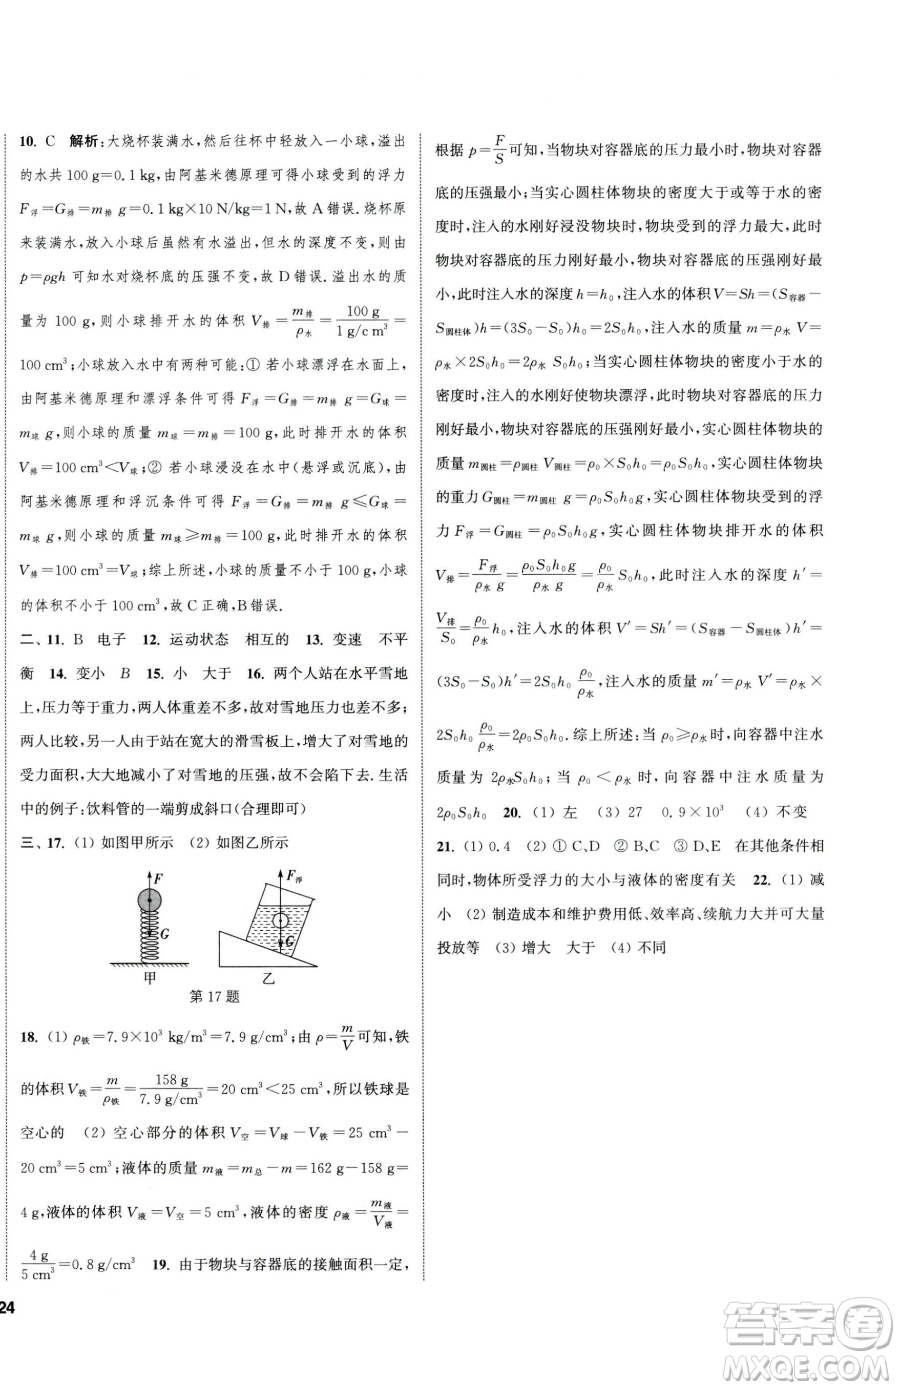 10. C 解析:大烧杯装满水,然后往杯中轻放入一小球,溢出
的水共 100 g=0.1 kg,由阿基米德原理可得小球受到的浮力
F浮=G排=m排 g=0.1 kg×10 N/kg=1 N,故 A 错误.烧杯原
来装满水,放入小球后虽然有水溢出,但水的深度不变,由
p=ρgh 可知水对烧杯底的压强不变,故 D 错误.溢出水的质
量为 100 g,则小球排开水的体积 V排=m排/ρ水=100 g/1 g/cm³=
100 cm³;小球放入水中有两种可能:① 若小球漂浮在水中,
由阿基米德原理和漂浮条件可得 F浮=G排=m排 g=G球=
m球 g,则小球的质量 m球=m排=100 g,此时排开水的体积
V排=100 cm³<V球;② 若小球浸没在水中(悬浮或沉底),由
阿基米德原理和浮沉条件可得 F浮=G排=m排 g≤G球=
m球 g,则小球的质量 m球≥m排=100 g,此时排开水的体积
V排=100 cm³=V球;综上所述,小球的质量不小于 100 g,小球
的体积不小于 100 cm³,故 C 正确,B 错误.
二、11. B 电子 12. 运动状态 相互的 13. 变速 不平
衡 14. 变小 B 15. 小 大于 16. 两个人站在水平雪地
上,压力等于重力,两人体重差不多,故对雪地压力差不多;
两人比较,男生由于站在宽大的滑雪板上,增大了对雪地的
受力面积,大大地减小了对雪地的压强,故不会陷下去.生活
中的例子:饮料管的一端剪成斜口(合理即可)
三、17. (1) 如图甲所示 (2) 如图乙所示
F
G
甲
F浮
G
乙
第 17 题
18. (1) ρ铁=7.9×10³ kg/m³=7.9 g/cm³;由 ρ=m/V可知,铁
的体积 V铁=m/ρ铁=158 g/7.9 g/cm³=20 cm³<25 cm³,所以铁球是
空心的 (2) 空心部分的体积 V空=V球-V铁=25 cm³-
20 cm³=5 cm³;液体的质量 m液=m总-m=162 g-158 g=
4 g,液体的体积 V液=V空=5 cm³,液体的密度 ρ液=m液/V液=
4 g/5 cm³=0.8 g/cm³ 19. 由于物块与容器底的接触面积一定,
根据 p=F/S可知,当物块对容器底的压力最小时,物块对容器
底的压强最小;当实心圆柱体物块的密度大于或等于水的
密度时,注入的水刚好浸没物块时,物块受到的浮力最大,此
时物块对容器底的压力刚好最小,物块对容器底的压强刚好最
小,此时注入水的深度 h=h₀,注入水的体积 V=Sh=(S容器-
S圆柱体)h=(3S₀-S₀)h₀=2S₀h₀,注入水的质量 m=ρ水 V=
ρ水×2S₀h₀=2ρ水 S₀h₀;当实心圆柱体物块的密度小于水的
密度时,注入的水刚好使物块漂浮时,物块对容器底的压力
刚好最小,物块对容器底的压强刚好最小,实心圆柱体物块的
质量 m圆柱=ρ圆柱 V圆柱=ρ₀×S₀h₀=ρ₀S₀h₀,实心圆柱体物块
的重力 G圆柱=m圆柱 g=ρ₀S₀h₀g,实心圆柱体物块受到的浮
力 F浮=G圆柱=ρ₀S₀h₀g,实心圆柱体物块排开水的体积
V排=F浮/ρ水 g=ρ₀S₀h₀g/ρ水 g=ρ₀/ρ水 S₀h₀,此时注入水的深度 h′=
V排/S₀=ρ₀/ρ水 h₀,注入水的体积 V′=Sh′=(S容器-S圆柱体)h′=
(3S₀-S₀)h′=2S₀h₀ ρ₀/ρ水,注入水的质量 m′=ρ水 V′=ρ水×
2S₀h₀ ρ₀/ρ水=2ρ₀S₀h₀.综上所述:当 ρ₀≥ρ水时,向容器中注水
质量为 2ρ水S₀h₀;当 ρ₀<ρ水时,向容器中注水质量为
2ρ₀S₀h₀ 20. (1) 左 (3) 27 0.9×10³ (4) 不变
21. (1) 0.4 (2) ① C、D ② B、C ③ D、E 在其他条件相
同时,物体所受浮力的大小与液体的密度有关 22. (1) 减
小 (2) 制造成本和维护费用低、效率高、续航力大、可大量
投放等 (3) 增大 大于 (4) 不同
24
答案圈
MXQE.COM